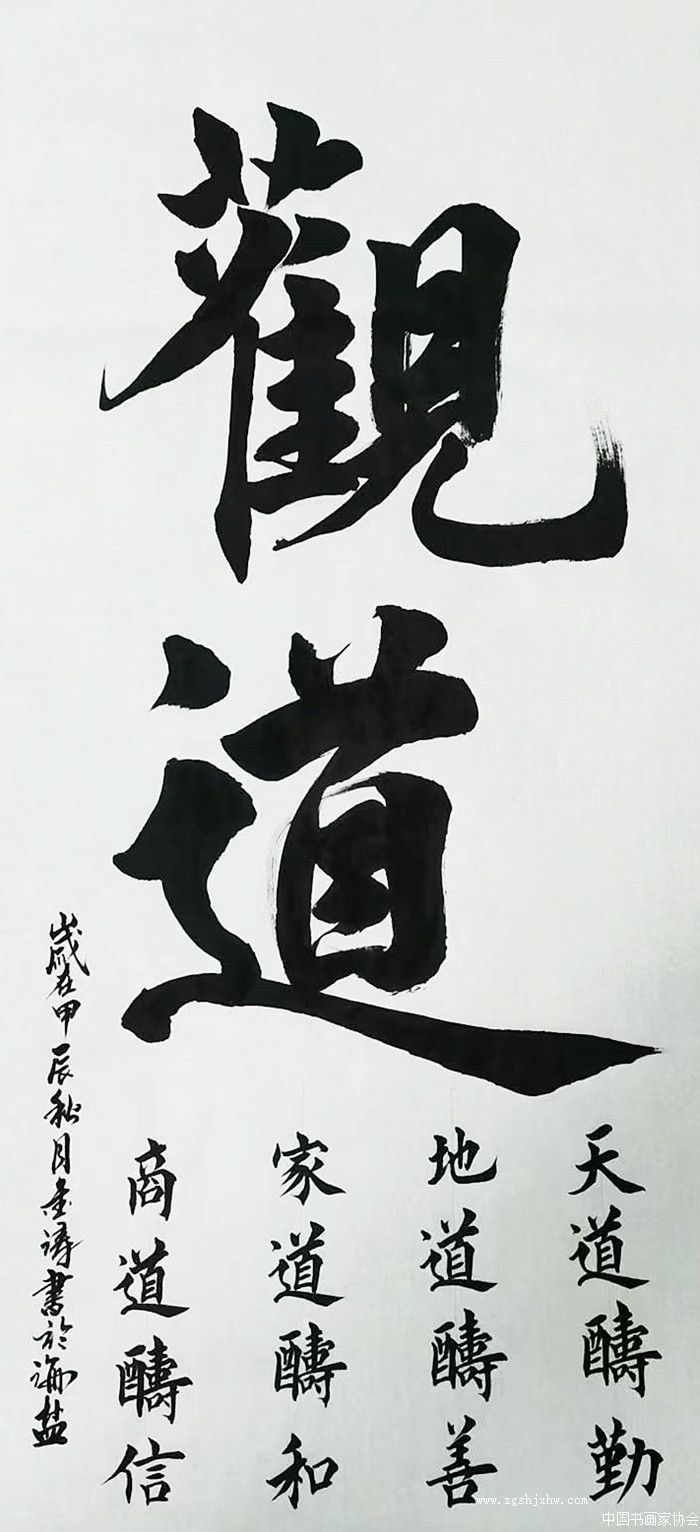 觀道
天道醻勤
地道醻善
家道醻和
商道醻信
歲在甲辰秋月金涛書於海盐
www.zgshjxhw.com
中国书画家协会